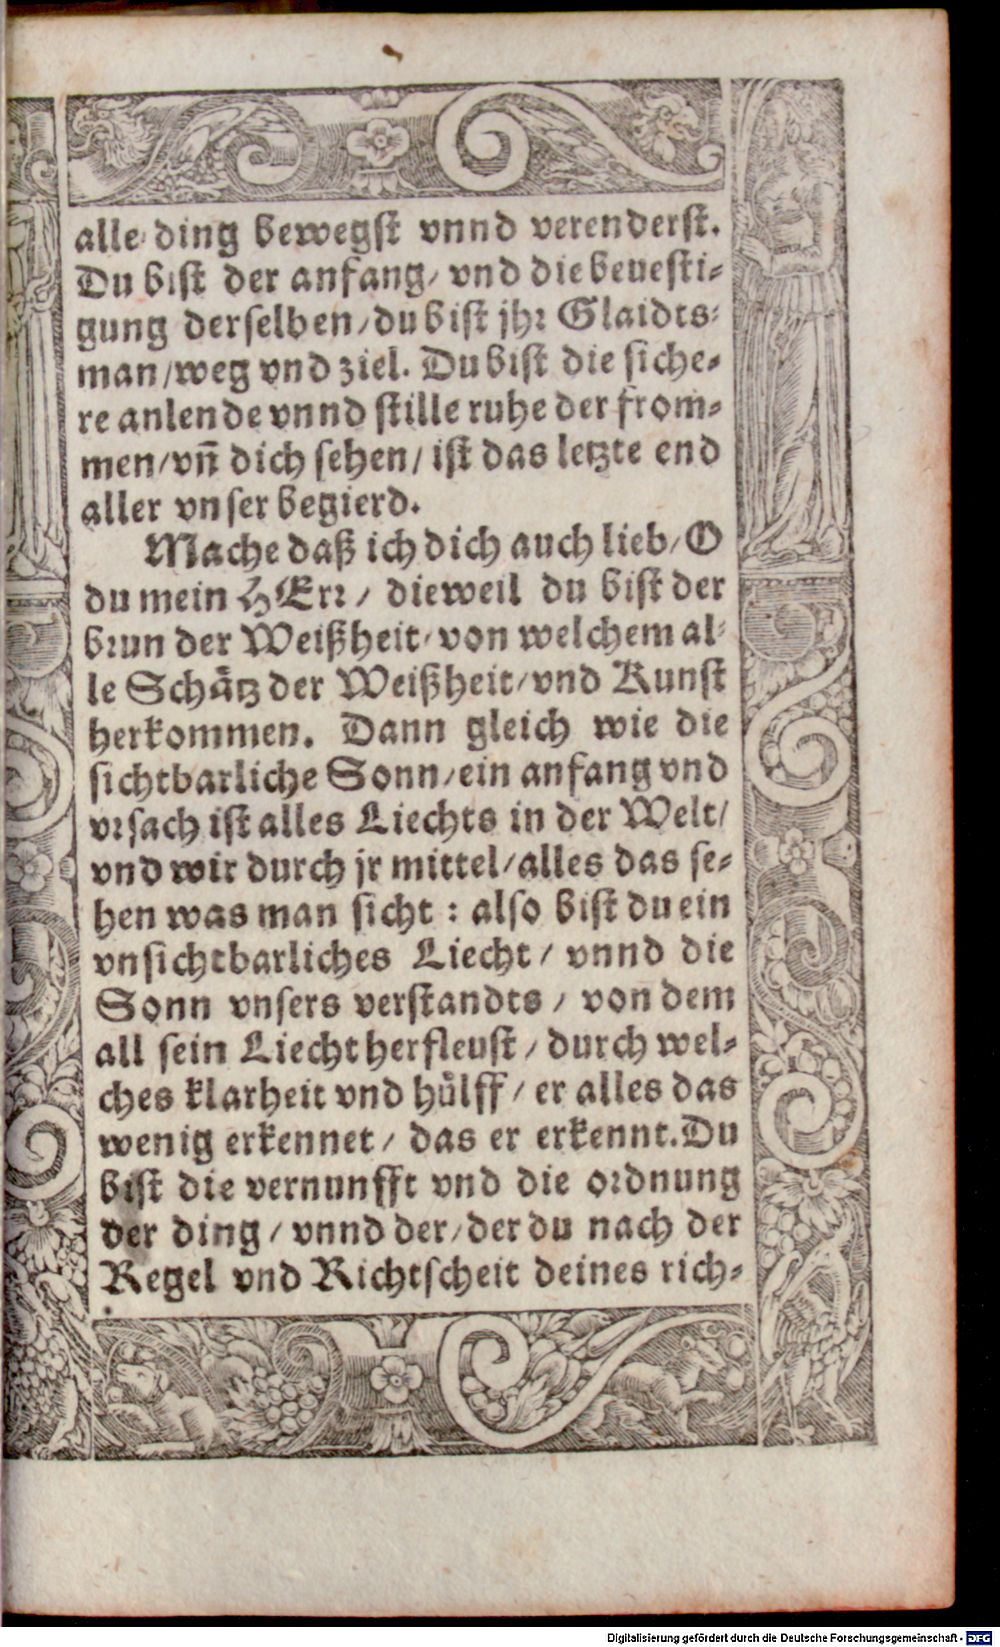 alle ding bewegst vnnd verenderst.
Du bist der anfang/ vnd die beuesti-
gung derselben/ du bist jhr Glaidts-
man/ weg vnd ziel. Du bist die siche-
re anlende vnnd stille ruhe der from-
men/ vñ dich sehen/ ist das letzte end
aller vnser begierd.
Mache daß ich dich auch lieb/ O
du mein HErr/ dieweil du bist der
brun der Weißheit/ von welchem al-
le Schätz der Weißheit/ vnd Kunst
herkommen. Dann gleich wie die
sichtbarliche Sonn/ ein anfang vnd
vrsach ist alles Liechts in der Welt/
vnd wir durch jr mittel/ alles das se-
hen was man sicht : also bist du ein
vnsichtbarliches Liecht/ vnnd die
Sonn vnsers verstandts/ von dem
all sein Liecht herfleust/ durch wel-
ches klarheit vnd hülff/ er alles das
wenig erkennet/ das er erkennt. Du
bist die vernunfft vnd die ordnung
der ding/ vnnd der/ der du nach der
Regel vnd Richtscheit deines rich-
Digitalisierung gefördert durch die Deutsche Forschungsgemeinschaft - DFG